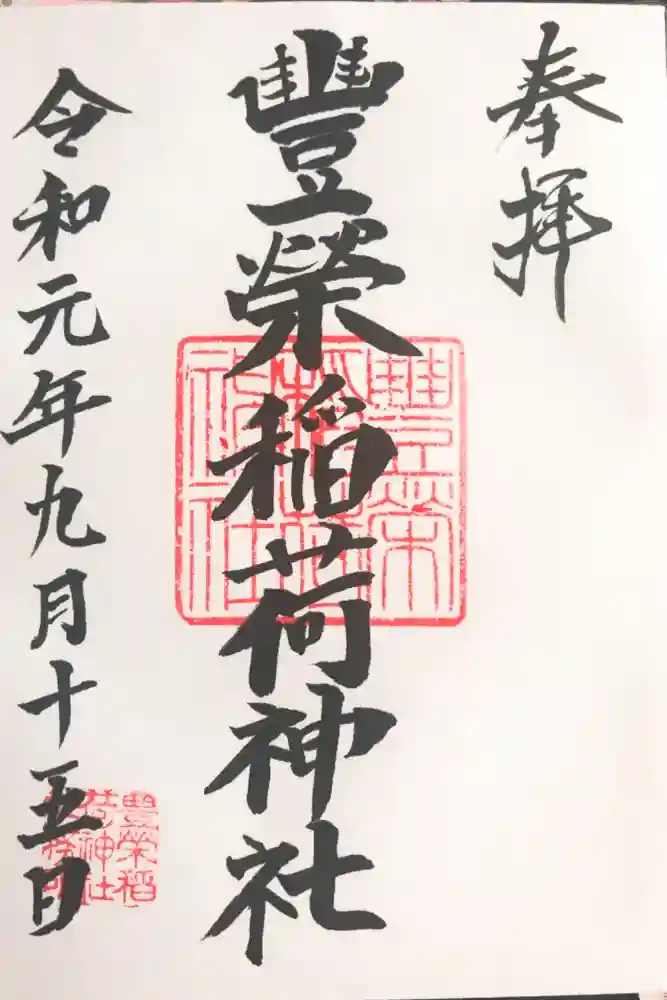 奉拝
豐榮稲荷神社
令和元年九月十五日
豐榮
稲荷
神社
豐榮稲
荷神社